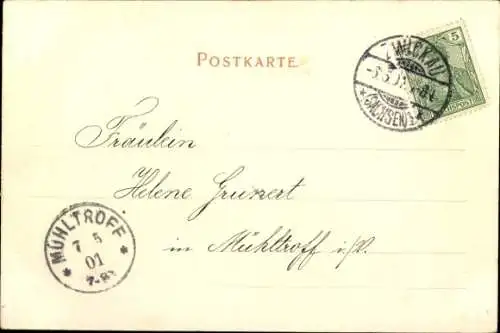 POSTKARTE.
ZWICKAU
(SACHSEN)
5
Fräulein
Helene Grunert
in Mühltroff i/V.
MÜHLTROFF
7 5
01